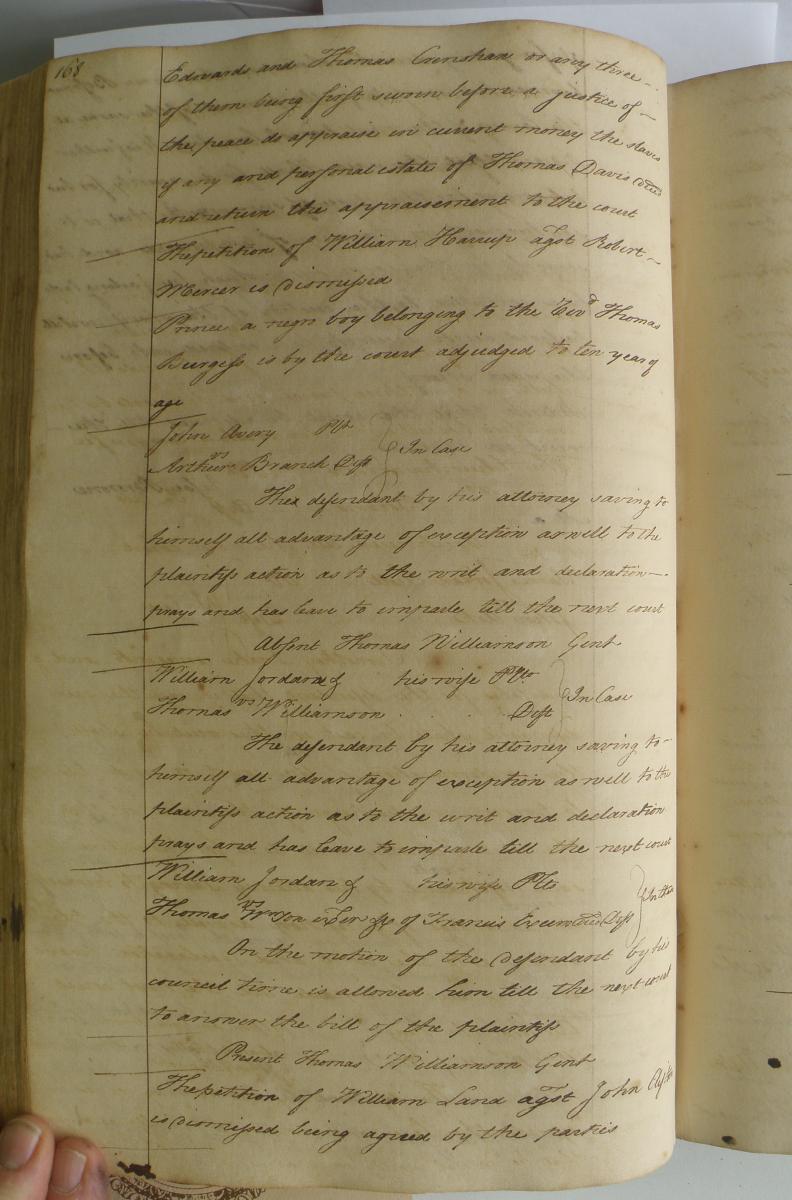 168
Edwards and Thomas Crenshaw or any three
of them being first sworn before a justice of
the peace do appraise in current money the slaves
if any and personal estate of Thomas Davis decd
and return the appraisement to the court
The petition of William Harrup agst Robert
Mercer is dismissed
Prince a negro boy belonging to the Revd Thomas
Burgess is by the court adjudged to ten year of
age
John Avery Plt
vs In Case
Arthur Branch Deft
The defendant by his attorney saving to
himself all advantage of exception as well to the
plaintifs action as to the writ and declaration
prays and has leave to imparle till the next court
Absent Thomas Williamson Gent
William Jordan & his wife Plts
vs In Case
Thomas Williamson Deft
The defendant by his attorney saving to
himself all advantage of exception as well to the
plaintifs action as to the writ and declaration
prays and has leave to imparle till the next court
William Jordan & his wife Plts
vs In Cha
Thomas Wmson exer &c of Francis decd Deft
On the motion of the defendant by his
council time is allowed him till the next court
to answer the bill of the plaintifs
Present Thomas Williamson Gent
The petition of William Land agst John
is dismissed being agreed by the parties